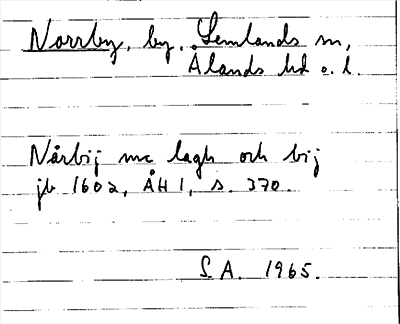 Norrby, by, Lemlands sn,
Ålands hd o. l.
Nårbij me lagh och bij
jb 1602, ÅH 1, s. 370.
S.A. 1965.